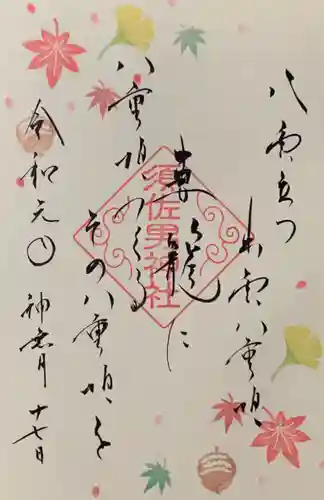 八雲立つ
出雲八重垣
妻籠に
八重垣つくる
その八重垣を
令和元年
神無月十七日
須佐男神社